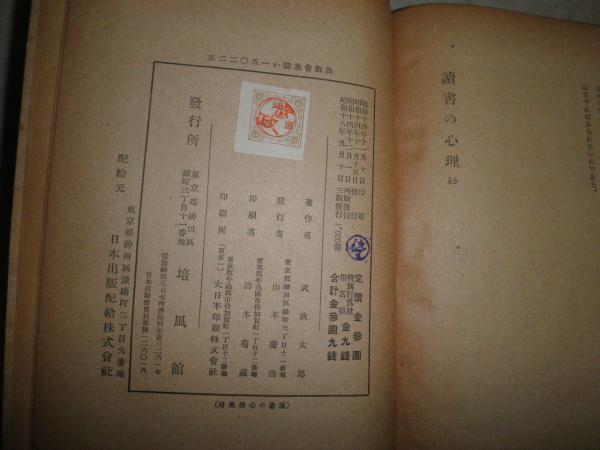 讀書の心理 終
出版會承認い一五〇二二五
昭和十四年十一月十日印刷
昭和十四年十一月十五日發行
昭和十八年九月十日三版發行
定價金參圓
特別行爲税相當額金九錢
合計金參圓九錢
著作者 武政太郎
東京都神田區錦町三丁目十一番地
發行者 山本慶治
東京都牛込區市谷加賀町一丁目十二番地
印刷者
東京都牛込區市谷加賀町一丁目十二番地
印刷所 大日本印刷株式會社
發行所
東京都神田區錦町三丁目十一番地
培風館
配給元
東京都神田區淡路町二丁目九番地
日本出版配給株式會社